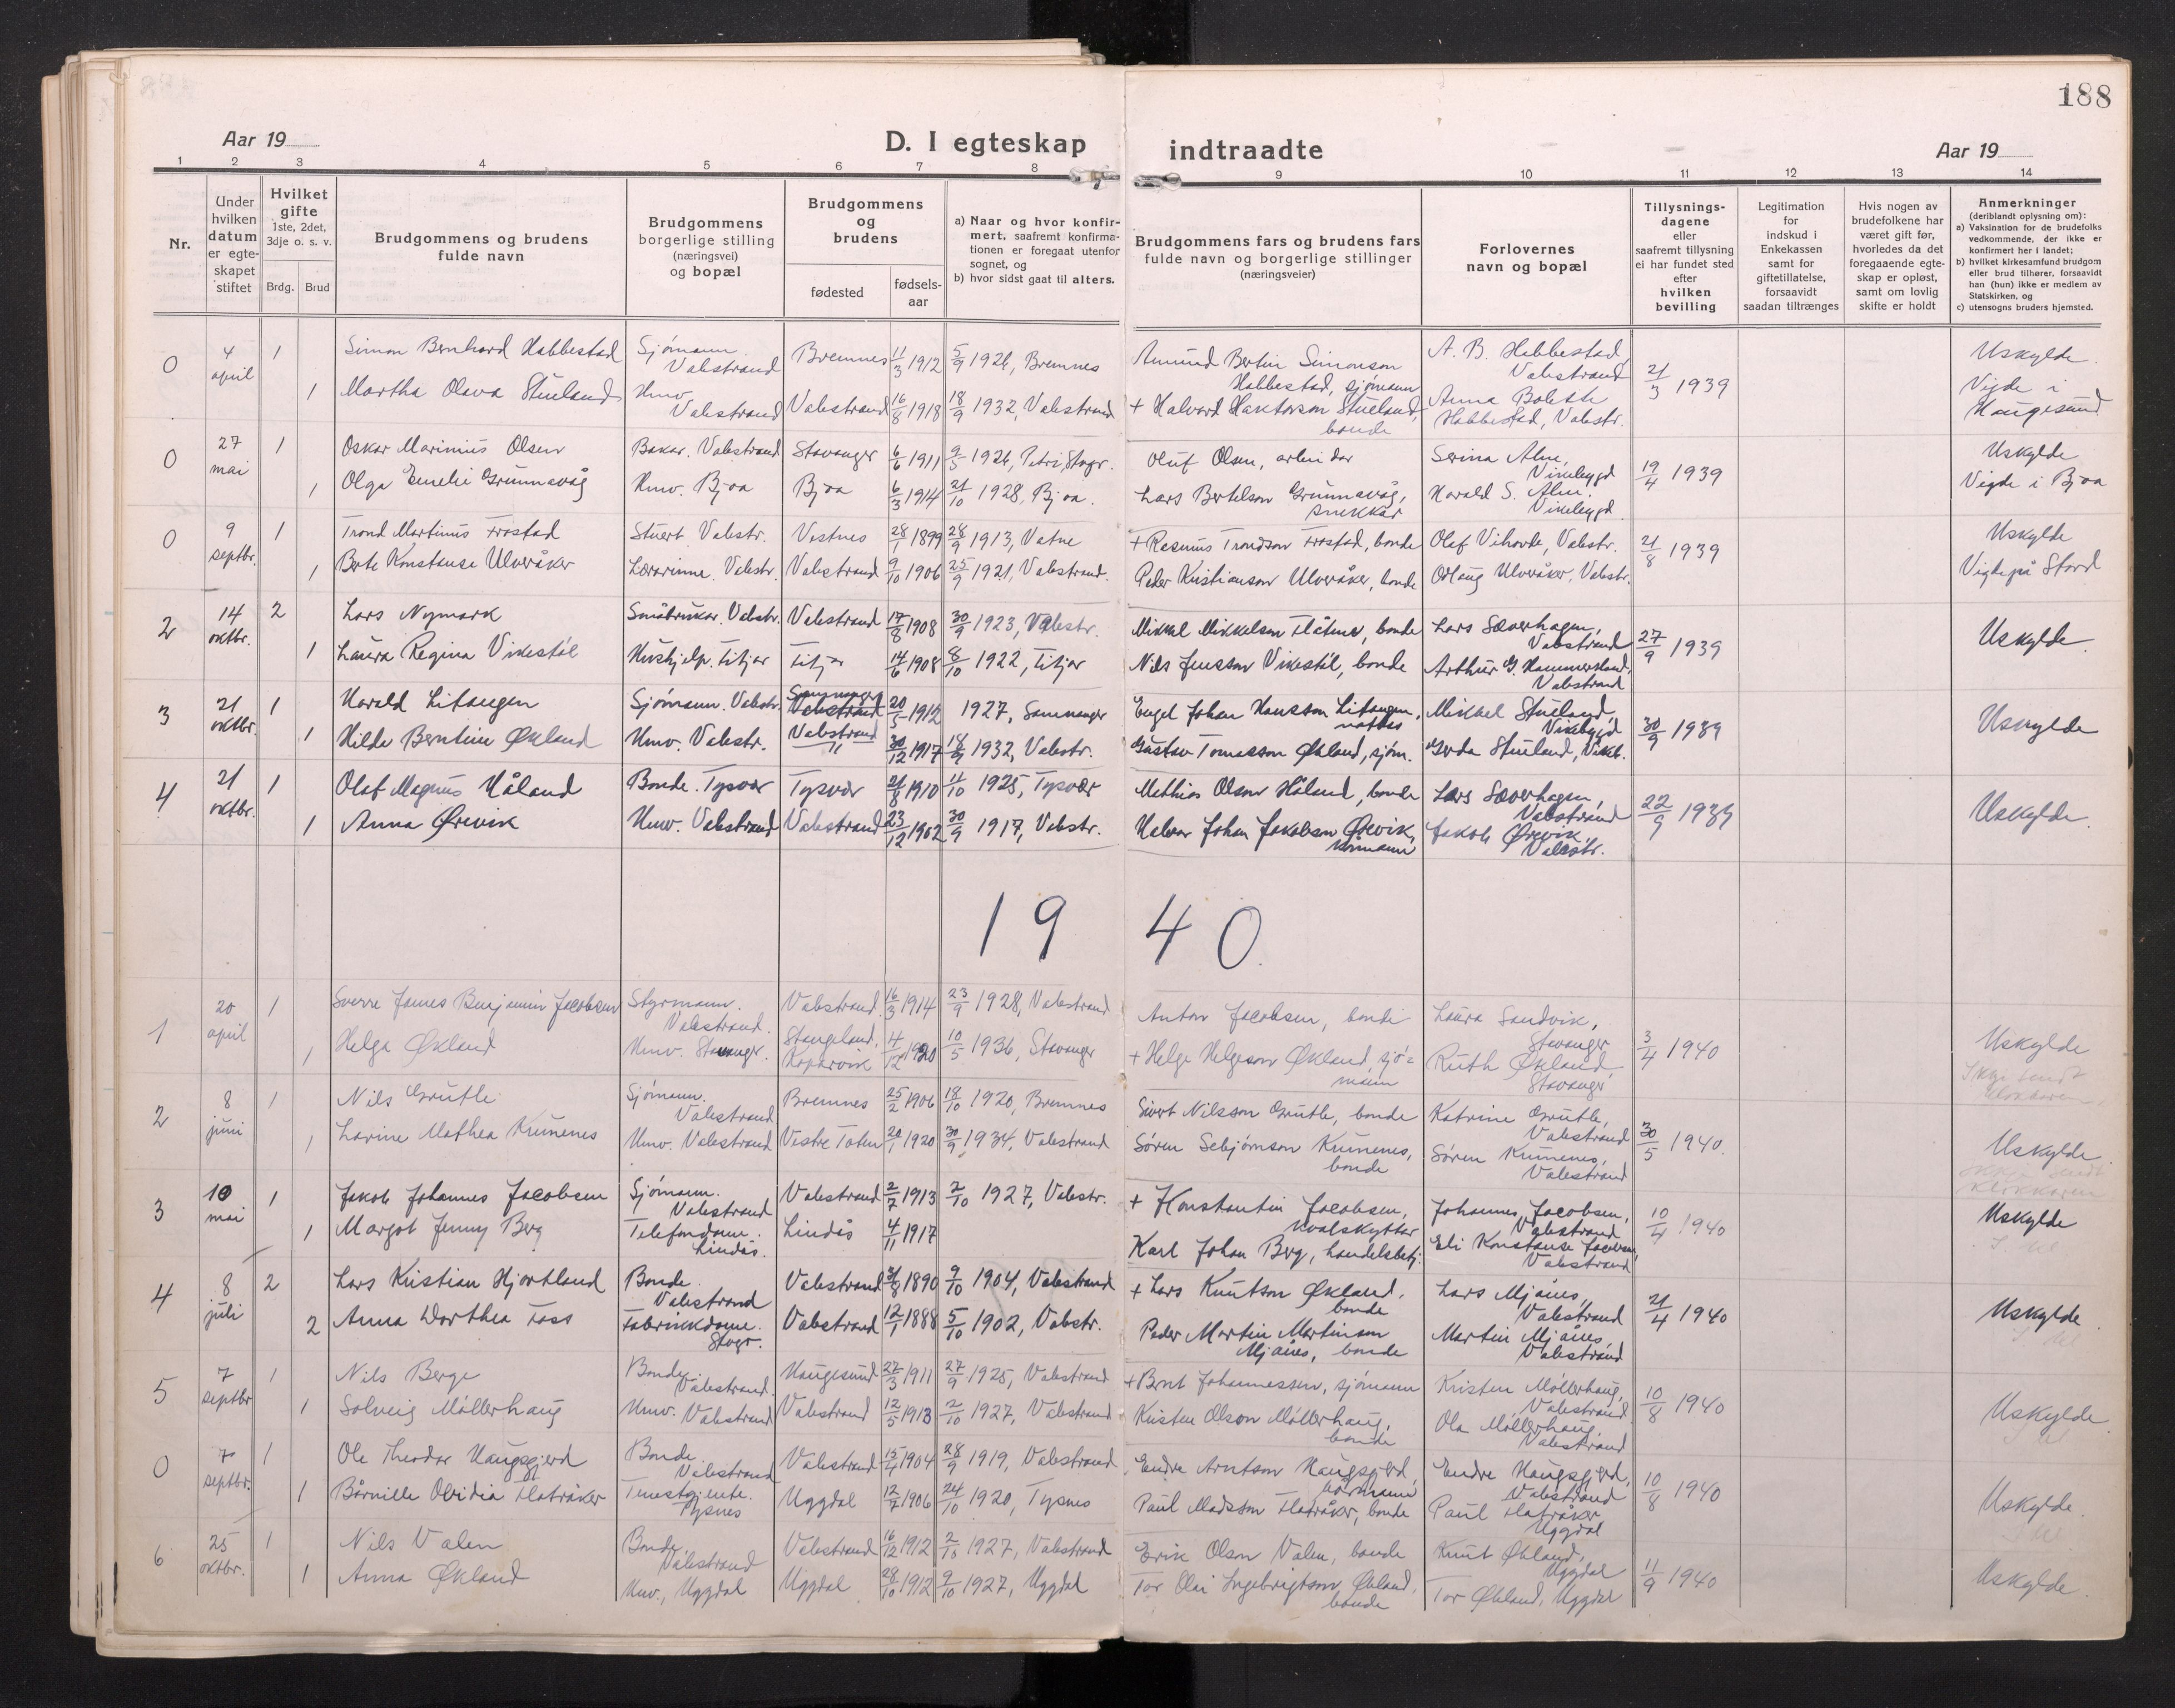 188
Aar 19
D. I egteskap indtraadte
Aar 19
1 2 3 4 5 6 7 8 9 10 11 12 13 14
Nr.
Under hvilken datum er egteskapet stiftet
Hvilket gifte 1ste, 2det, 3dje o. s. v.
Brdg. Brud
Brudgommens og brudens fulde navn
Brudgommens borgerlige stilling (næringsvei) og bopæl
Brudgommens og brudens
fødested
fødsels-aar
a) Naar og hvor konfirmert, saafremt konfirmationen er foregaat utenfor sognet, og
b) hvor sidst gaat til alters.
Brudgommens fars og brudens fars fulde navn og borgerlige stillinger (næringsveier)
Forlovernes navn og bopæl
Tillysningsdagene eller saafremt tillysning ei har fundet sted efter hvilken bevilling
Legitimation for indskud i Enkekassen samt for giftetillatelse, forsaavidt saadan tiltrænges
Hvis nogen av brudefolkene har været gift før, hvorledes da det foregaaende egteskap er opløst, samt om lovlig skifte er holdt
Anmerkninger (deriblandt oplysning om):
a) Vaksination for de brudefolks vedkommende, der ikke er konfirmert her i landet;
b) hvilket kirkesamfund brudgom eller brud tilhører, forsaavidt han (hun) ikke er medlem av Statskirken, og
c) utensogns bruders hjemsted.
0 4 april 1 Simon Bernhard Habbestad Sjømann. Valestrand Bremnes 11/3 1912 5/9 1926, Bremnes Amund Bertin Simonson Habbestad, sjømann A. B. Habbestad, Valestrand 21/3 1939 Uskylde.
1 Martha Olava Stueland Hmv. Valestrand Valestrand 16/8 1918 18/9 1932, Valestrand + Halvard Haktorson Stueland, bonde Anna Bolette Habbestad, Valestr. Vigde i Haugesund
0 27 mai 1 Oskar Marinius Olsen Bakar. Valestrand Stavanger 6/6 1911 9/5 1926, Petri, Stvgr. Oluf Olsen, arbeidar Serina Alne, Vikebygd 19/4 1939 Uskylde
1 Olga Emelie Grunnavåg Hmv. Bjoa Bjoa 6/3 1914 21/10 1928, Bjoa. Lars Bertelson Grunnavåg, snekkar Harald S. Alne, Vikebygd Vigde i Bjoa
0 9 septbr. 1 Trond Martinus Frostad Stuert Valestr. Vestnes 28/1 1899 28/9 1913, Vatne + Rasmus Trondson Frostad, bonde Olaf Vihovde, Valestr. 21/8 1939 Uskylde
1 Berte Konstanse Ulveråker Lærarinne. Valestr. Valestrand 9/10 1906 25/9 1921, Valestrand. Peder Kristianson Ulveråker, bonde Odlaug Ulveråker, Valestr. Vigde på Stord
2 14 oktbr. 2 Lars Nymark Småbrukar. Valestr. Valestrand 17/8 1908 30/9 1923, Valestr. Mikkel Mikkelson Flåtnes, bonde Lars Sæverhagen, Valestrand 27/9 1939 Uskylde.
1 Laura Regina Vikestøl Hushjelp. Fitjar Fitjar 14/6 1908 8/10 1922, Fitjar Nils Jensson Vikestøl, bonde Arthur G. Hammersland, Valestrand
3 21 oktbr. 1 Harald Litangen Sjømann. Valestr. Samnanger Valestrand 20/5 1912 1927, Samnanger Engel Johan Hansson Litangen, Mikkel Stueland, Vikebygd 30/9 1939 Uskylde
1 Hilda Bentine Økland Hmv. Valestr. Valestrand " 30/12 1917 18/9 1932, Valestr. Gustav Tomasson Økland, sjøm. Gerda Stueland, Vikeb.
4 21 oktbr. 1 Olaf Magnus Håland Bonde. Tysvær Tysvær 21/8 1910 11/10 1925, Tysvær Mathias Olson Håland, bonde Lars Sæverhagen, Valestrand 22/9 1939 Uskylde.
1 Anna Ørevik Hmv. Valestrand Valestrand 23/12 1902 30/9 1917, Valestr. Halvor Johan Jakobson Ørevik, kårmann Jakob Ørevik, Valestr.
1940.
1 20 april 1 Sverre James Benjamin Jacobsen Styrmann. Valestrand. Valestrand. 16/3 1914 23/9 1928, Valestrand Anton Jacobsen, bonde Laura Sandvik, Stavanger 3/4 1940 Uskylde
1 Helga Økland Hmv. Stavanger. Stangeland, Kopervik 4/12 1920 10/5 1936, Stavanger + Helge Helgeson Økland, sjømann Ruth Økland Stavanger
2 8 juni 1 Nils Grutle Sjømann. Valestrand Bremnes 25/2 1906 18/10 1920, Bremnes Sivert Nilsson Grutle, bonde Katrine Grutle, Valestrand 30/5 1940. Uskylde.
1 Larine Mathea Kuneness Hmv. Valestrand Vestre Toten 20/1 1920 30/9 1934, Valestrand Søren Sebjørnson Kunenes, bonde Søren Kunenes, Valestrand
3 10 mai 1 Jakob Johannes Jacobsen Sjømann. Valestrand Valestrand 2/7 1913 2/10 1927, Valestr. + Konstantin Jacobsen, kvalskyttar Johannes Jacobsen, Valestrand 10/4 1940 Uskylde
1 Margot Jenny Berg Telefondame. Lindås. Lindås 4/11 1917 Karl Johan Berg, handelsbetj. Eli Konstanse Jacobsen, Valestrand
4 8 juli 2 Lars Kristian Hjortland Bonde Valestrand Valestrand 31/8 1890 9/10 1904, Valestrand + Lars Knutson Økland, bonde Lars Mjånes, Valestrand 21/4 1940 Uskylde
2 Anna Dorthea Foss Fabrikkdame. Stvgr. Valestrand 12/1 1888 5/10 1902, Valestr. Peder Martin Martinson Mjånes, bonde Martin Mjånes, Valestrand
5 7 septbr 1 Nils Berge Bonde Valestrand. Haugesund 27/3 1911 27/9 1925, Valestrand + Bernt Johannessen, sjømann Kristen Møllerhaug, Valestrand 10/8 1940 Uskylde
1 Solveig Møllerhaug Hmv. Valestrand Valestrand 12/5 1913 2/10 1927, Valestrand Kristen Olson Møllerhaug, bonde Ola Møllerhaug, Valestrand
0 7 septbr. 1 Ole Theodor Haugsgjerd Bonde Valestrand Valestrand 15/4 1904 28/9 1919, Valestrand Endre Arntson Haugsgjerd, kårmann Endre Haugsgjerd, Valestrand 10/8 1940 Uskylde.
1 Bårnille Ovidia Flatråker Tenestgjente. Tysnes Uggdal 12/7 1906 24/10 1920, Tysnes Paul Madsson Flatråker, bonde Paul Flatråker Uggdal
6 25 oktbr. 1 Nils Valen Bonde Valestrand Valestrand 16/12 1912 2/10 1927, Valestrand Erik Olson Valen, bonde Knut Økland, Uggdal 11/9 1940 Uskylde.
1 Anna Økland Hmv., Uggdal Uggdal 28/10 1912 9/10 1927, Uggdal Tor Olai Ingebrigtson Økland, bonde Tor Økland, Uggdal